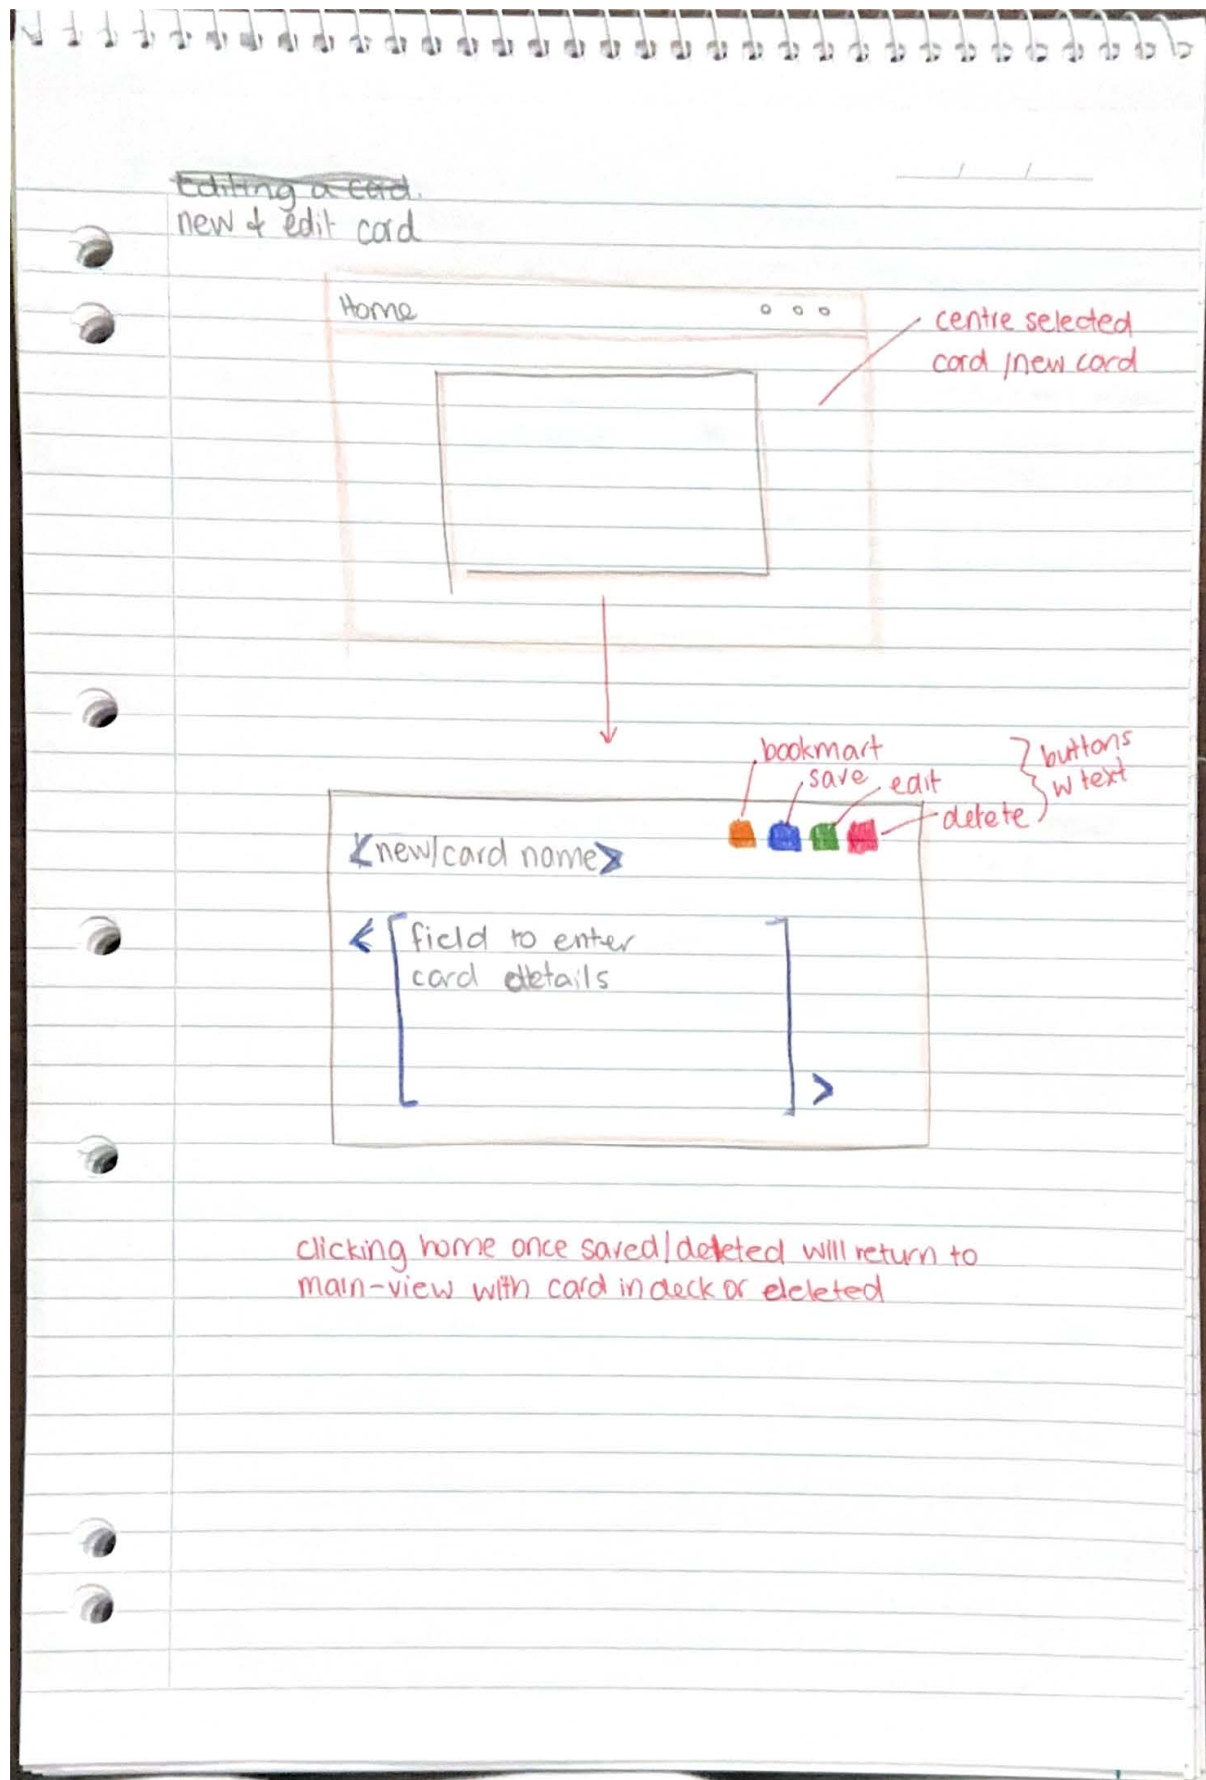 Editing a card.
new & edit card
Home
centre selected
card /new card
bookmart
save
edit
delete
buttons
w text
<new/card name>
< [field to enter
card details
] >
clicking home once saved/deleted will return to
main-view with card in deck or deleted